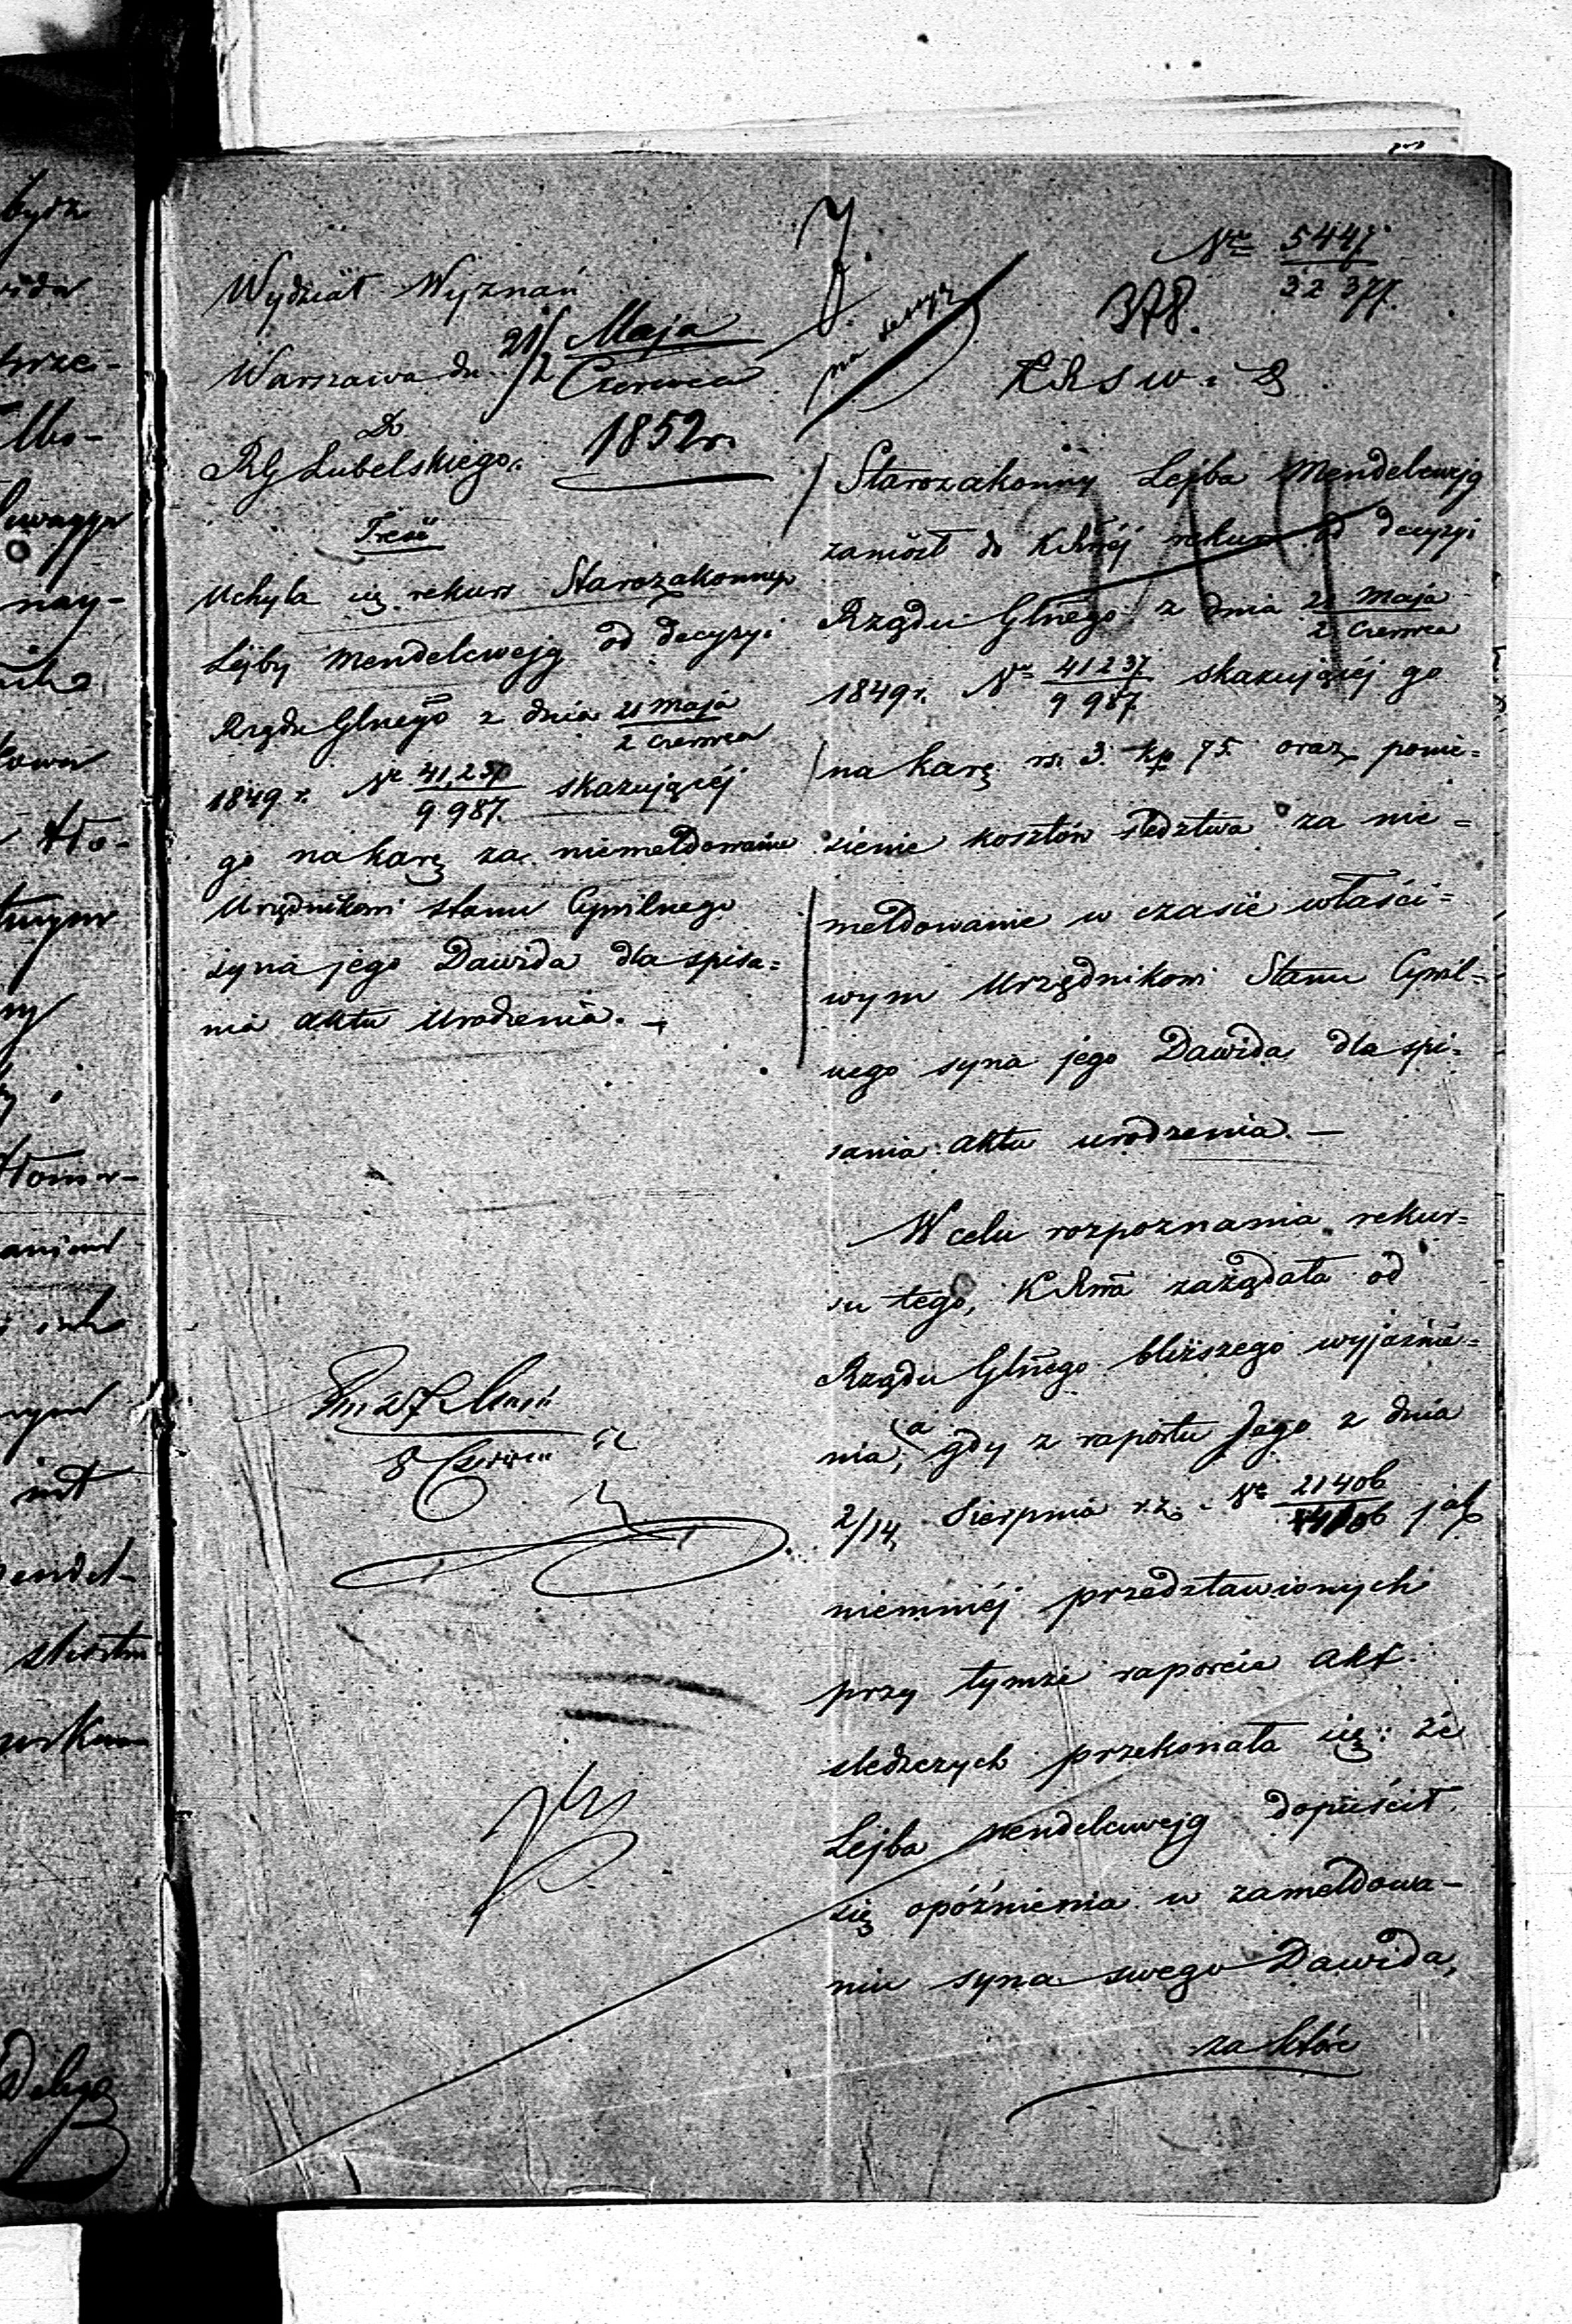 Nro 5447
32377.
378.
Wydział Wyznań
Warszawa dn. 21/2 Maja
Czerwca
1852 r.
na sessyę
K R S W i D
Do
RG Lubelskiego.
Treść
Uchyla się rekurs Starozakonnego
Lejby Mendelcwejg od decyzyi
Rządu Glnego z dnia 21 Maja
2 Czerwca
1849 r. Nr 41,237
9 987. skazującéj
go na karę za niemeldowanie
Urzędnikowi stanu Cywilnego
syna jego Dawida dla spisa=
nia aktu Urodzenia. —
8 Czerwca
Starozakonny Lejba Mendelcwejg
zaniósł do KRwéj rekurs od decyzyi
Rządu Glnego z dnia 21 Maja
2 Czerwca
1849 r. Nr 41237
9 987 skazującéj go
na karę rs. 3 kp 75 oraz ponie=
sienie kosztów śledztwa za nie=
meldowanie w czasie właści=
wym Urzędnikowi Stanu Cywil=
nego syna jego Dawida dla spi=
sania aktu urodzenia. —
W celu rozpoznania rekur=
su tego, KRwa zażądała od
Rządu Glnego bliższego wyjaśnie=
nia, a gdy z raportu Jego z dnia
2/14 Sierpnia r.z. Nr 21406
jak
niemniéj przedstawionych
przy tymże raporcie akt
śledczych przekonała się: że
Lejba Mendelcwejg dopuścił
się opóźnienia w zameldowa-
niu syna swego Dawida,
za które